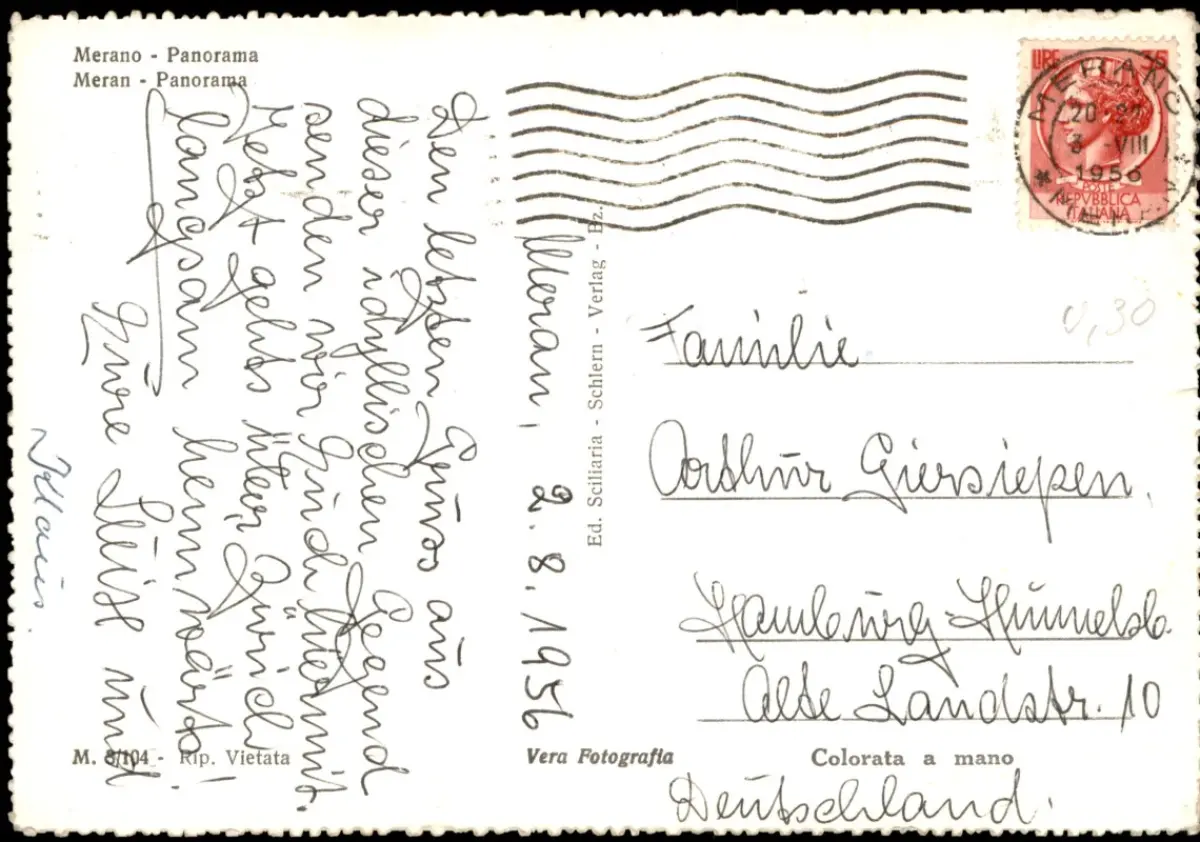 Merano - Panorama
Meran - Panorama
Meran, 2. 8. 1956
Den letzten Gruss aus
dieser idyllischen Gegend
senden wir Euch hiermit.
Jetzt gehts über Zürich
langsam heimwärts!
Eure Lleis und
Klaus.
Ed. Sciliaria - Schlern - Verlag - Bz.
LIRE 35
MERANO
20-21
3 -VIII
1956
POSTE
REPVBBLICA
ITALIANA
0,30
Familie
Arthur Giersiepen,
Hamburg-Hummelsb.
Alte Landstr. 10
Deutschland.
M. 8/104 - Rip. Vietata
Vera Fotografia
Colorata a mano